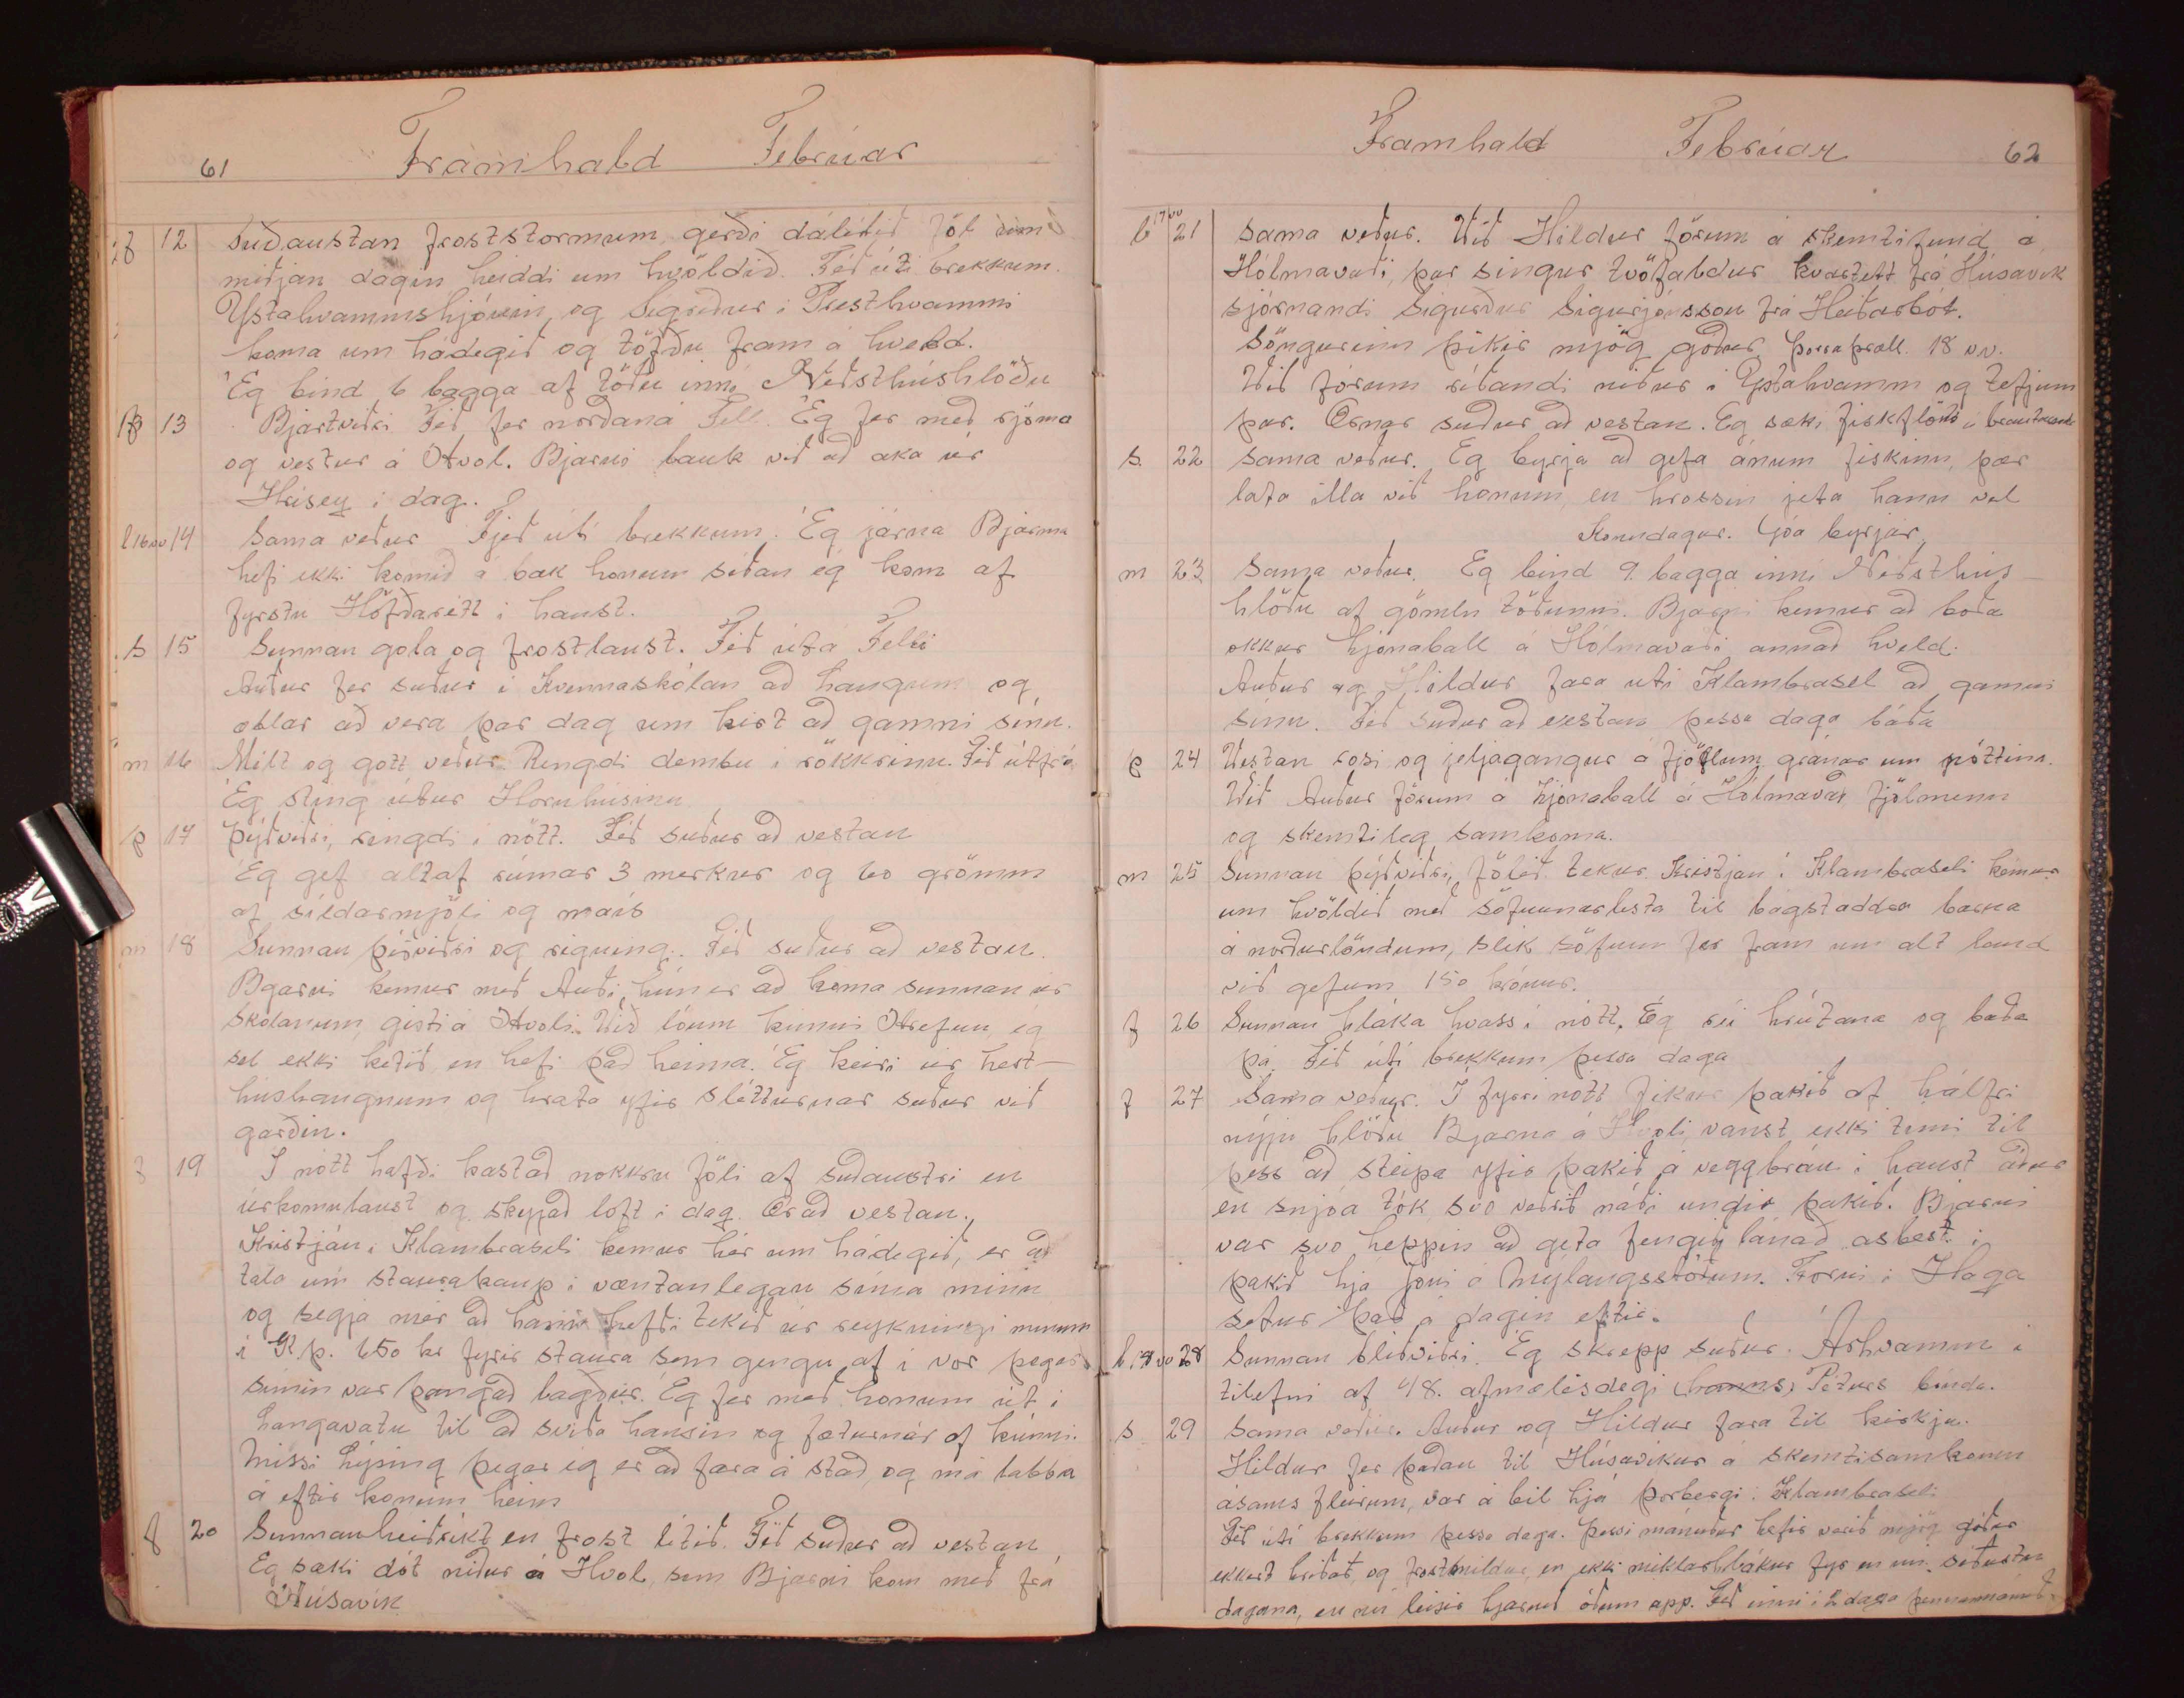 61 Framhald Febrúar
f 12 Suðaustan froststormum, gerði dálitið föl um
miðjan dagin heiddi um kvöldið. Féð úti brekkum.
Ystahvammshjónin og Sigríður í Presthvammi
koma um hádegið og töfðu fram á hveld.
Ég bind 6 bagga af töðu inni Neðsthúshlöðu
f 13 Bjartviðri Féð fer norðaná Fell. Ég fer með rjóma
og vestur á Hvol. Bjarni bauk við að aka úr
Hrísey í dag.
l 16 vv 14 Sama veður Fjeð úti brekkum. Ég járna Bjarma
hefi ekki komið á bak honum síðan ég kom af
fyrstu Höfðarétt í haust.
s 15 Sunnan gola og frostlaust. Féð útá Felli
Auður fer suður í Kvennaskólan að Laugum og
ætlar að vera þar dag um kirt að gamni sínu.
m 16 Milt og gott veður Rengdi dembu í rökkrinu. Féð útfrá
Ég sting útúr Hornhúsinu
þ 17 Þýðviðri, ringdi í nótt. Féð suður að vestan
Ég gef altaf rúmar 3 merkur og 60 grömm
af síldarmjöli og maís
m 18 Sunnan þíðviðri og rigning. Féð suður að vestan.
Bjarni kemur með Auði, hún er að koma sunnan úr
skólanum, gisti á Hvoli. Við lóum kúnni Hrefnu, ég
sel ekki ketið en hefi það heima. Ég keiri úr hest-
húshaugnum og hrata yfir slétturnar suður við
garðin.
f 19 Í nótt hafði kastað nokkru föli af suðaustri en
úrkomulaust og skyjað loft í dag. Er að vestan.
Kristján í Klambraseli kemur hér um hádegið, er að
tala um staurakaup í væntanlegan síma minn
og segja mér að hann hefði tekið úr reykningi mínum
í K.þ. 650 kr fyrir staura sem gengu af í vor þegar
símin var þangað lagður. Ég fer með honum út í
Langavatn til að svíða hausin og fæturnar af kúnni.
Missi Lýsing þegar ég er að fara á stað, og má labba
á eftir honum heim
f 20 Sunnanheiðríkt en frost lítið. Féð suður að vestan
Ég sæki dót niður á Hvol, sem Bjarni kom með frá
Húsavík
Framhald Febrúar 62
l 17 vv 21 Sama veður. Við Hildur förum á skemtifund á
Hólmavaði, þar singur tvöfaldur kvartett frá Húsavík
stjórnandi Sigurður Sigurjónsson frá Heiðarbót.
Söngurinn þikir mjög góður Þorraþræll. 18 vv.
Við förum ríðandi niður í Ystahvamm og tefjum
þar. Ærnar suður að vestan. Ég sæki fiskflöttu í
s. 22 Sama veður. Ég byrja að gefa ánum fiskinn, þær
láta illa við honum, en hrossin jeta hann vel
Konudagur. Góa byrjar
m 23 Sama veður. Ég bind 9 bagga inni Neðsthús-
hlöðu af gömlu töðunni. Bjarni kemur að boða
okkur hjónaball á Hólmavaði annað hveld.
Auður og Hildur fara útí Klambrasel að gamni
sínu. Féð suður að vestan þessa daga báða
þ 24 Vestan rosi og jeljagangur á fjöllum gránar um nóttina.
Við Auður förum á hjónaball á Hólmavað fjölmenn
og skemtileg samkoma.
m 25 Sunnan þýðviðri, fölið tekur. Kristján í Klambraseli kemur
um kvöldið með söfnunarlista til bágstaddra barna
á norðurlöndum, slík söfnun fer fram um alt land
við gefum 150 krónur.
f 26 Sunnan hláka hvass í nótt. Ég rúi hrútana og baða
þá. Féð úti brekkum þessa daga
f 27 Sama veður. Í fyrri nótt fikur þakið af hálfri
nýju hlöðu Bjarna á Hvoli, vanst ekki tími til
þess að steipa yfir þakið á veggbrún í haust áður
en snjóa tók svo veðrið náði undir þakið. Bjarni
var svo heppin að geta fengið lánað asbest í
þakið hjá Jóni á Mýlaugsstöðum. Forni í Haga
setur það á dagin eftir.
l 18 vv 28 Sunnan blíðviðri. Ég skrepp suður. Árhvamm í
tilefni af 48. afmælisdegi (hanns) Péturs bónda.
s 29 Sama veður. Auður og Hildur fara til kirkju.
Hildur fer þaðan til Húsavíkur á skemtisamkomu
ásamt fleirum, var á bíl hjá Þorbergi í Klambraseli
Féð úti brekkum þessa daga. Þessi mánuður hefir verið mjög góður
ekkert hríðað, og frostmildur, en ekki miklar hlákur fyr en nú síðustu
dagana, en nú leisir hjarnið óðum upp. Féð inni í 2 daga